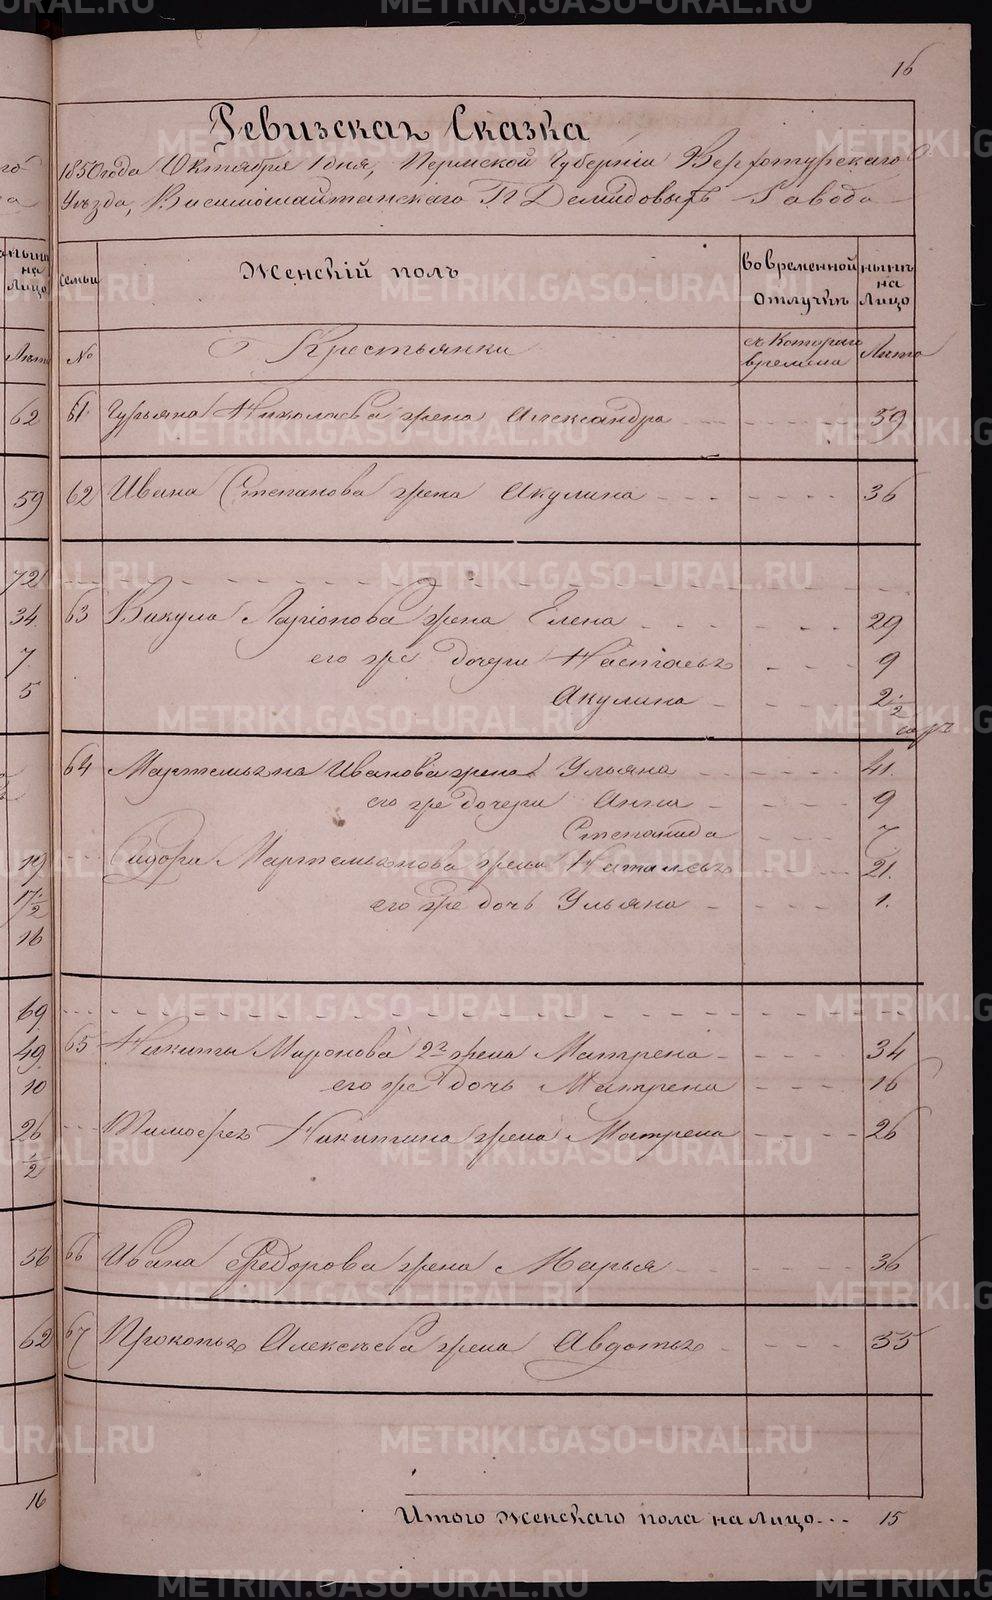 16
Ревизская Сказка
1850 года Октября 1 дня, Пермской Губерніи Верхотурскаго
Уѣзда, Висимошайтанскаго Гг Демидовыхъ Завода
семьи
Женскій полъ
во временной отлучкѣ
нынѣ на Лицо
№
Крестьянки
съ Котораго времени
Лѣта
62 61 Гурьяна Николаева жена Александра 59
59 62 Ивана Степанова жена Акулина 36
72
34 63 Викула Ларіонова жена Елена 29
7 его же дочери Настасья 9
5 Акулина 2 1/2
64 Мартемьяна Иванова жена Ульяна 41.
его же дочери Анна 9
Степанида 7
19 Сидора Мартемьянова жена Наталья 21.
17 1/2 его же дочь Ульяна 1.
16
69
49 65 Никиты Миронова 2я жена Матрена 34
10 его же дочь Матрена 16
26 Тимофея Никитина жена Матрена 26
1/2
56 66 Ивана Федорова жена Марья 36
62 67 Прокопья Алексѣева жена Авдотья 55
16
Итого женскаго пола на Лицо 15
METRIKI.GASO-URAL.RU